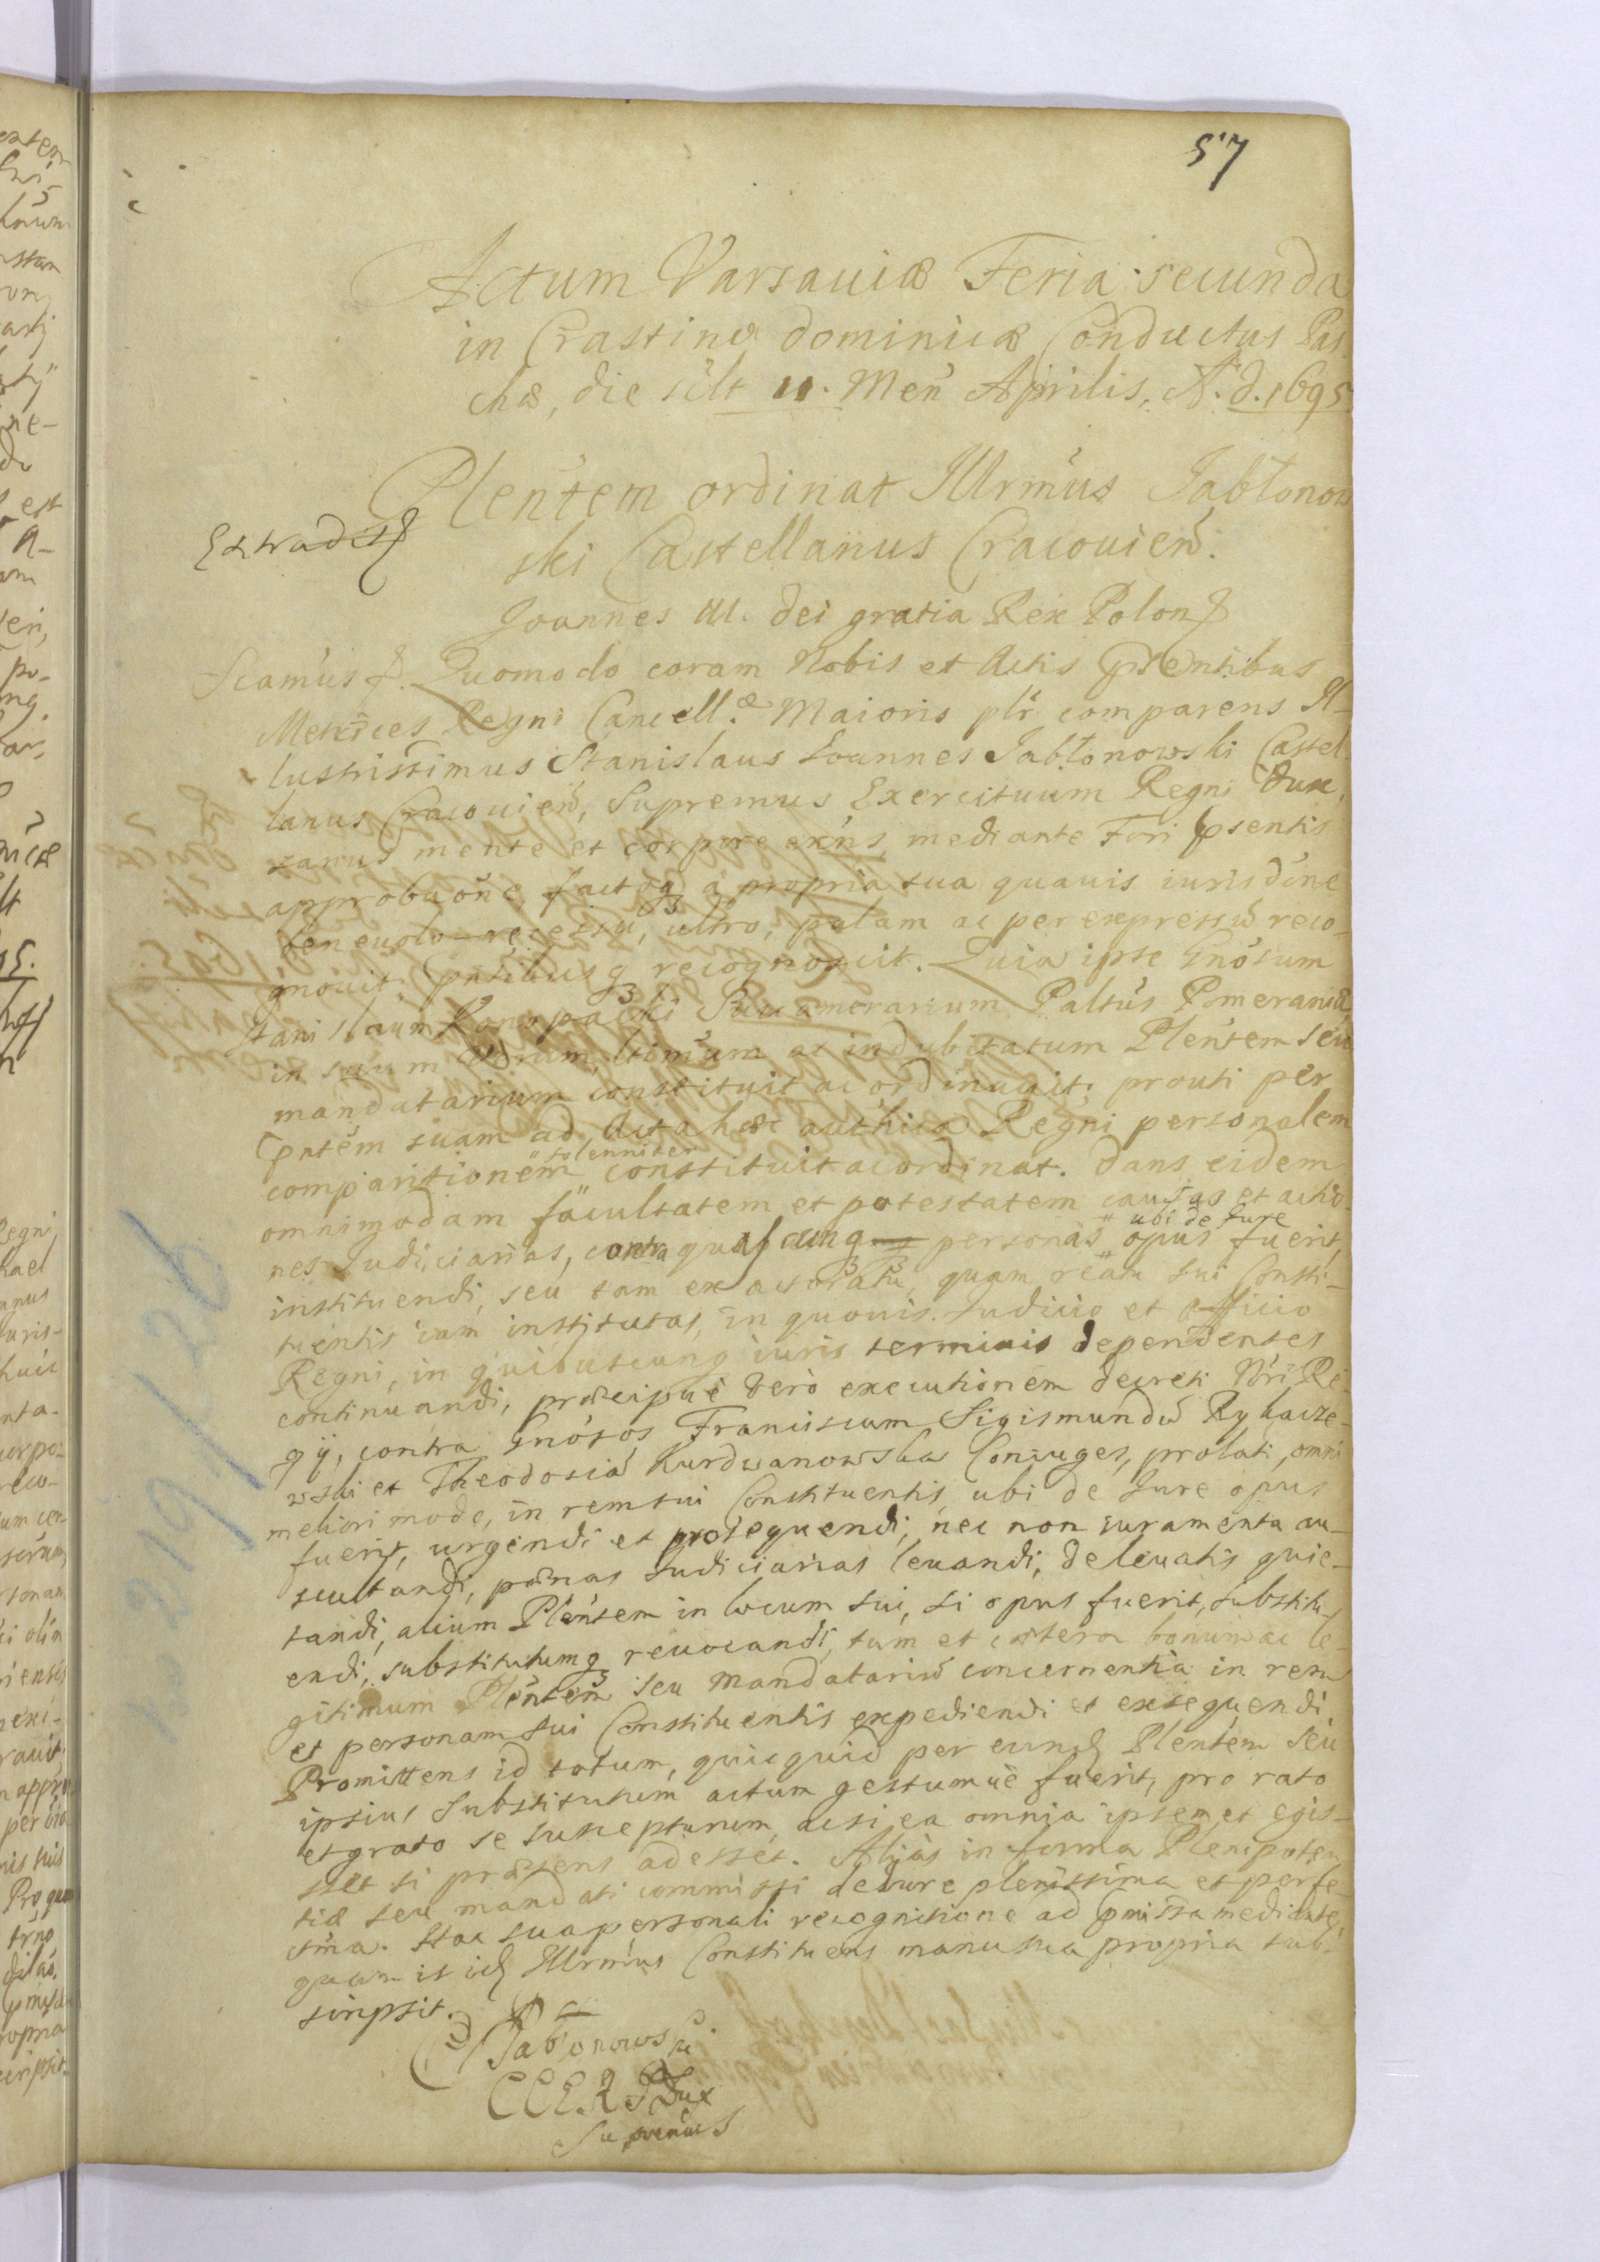 57
Actum Varsaviæ Feria secunda
in Crastino dominicæ Conductus Pas
chæ, die silt 11. Men̄ Aprilis, A. d. 1695
Plen̄tem ordinat Illrm̄us Jabłonow
ski Castellanus Cracouien̄.
Extradit
Joannes III. dei gratia Rex Polon
Scamus. Quomodo coram Nobis et Actis prēntibus
Metrices Regni Cancell.æ Maioris plr̄ comparens Il-
lustrissimus Stanislaus Joannes Jabłonowski Castel
lanus Cracouien̄, Supremus Exercituum Regni Dux,
sanus mente et corpore exn̄s, mediante Fori psentis
approbaōne, factoq à propria sua quavis iurisdōne
beneuolo recessu, ultro, palam ac per expressū reco-
gnouit pn̄tibusq recognoscit. Quia ipse Gnōsum
Stanislaum Konopacki Succamerarium Paltūs Pomeraniæ
in suum verum, ltimum ac indubitatum Plen̄tem seu
mandatarium constituit ac ordinavit, prouti per
pn̄tem suam ad Acta hæc authca Regni personalem
comparitionem solenniter constituit ac ordinat. Dans eidem
omnimodam facultatem et potestatem causas et actio
nes Iudiciarias, contra quascunq personas ubi de Iure opus fuerit,
instituendi, seu tam ex actoratu, quam reatu sui Consti-
tuentis iam institutas, in quouis Iudicio et Officio
Regni, in quibuscunq iuris terminis dependentes
continuandi, præcipuè verò executionem decreti Nr̄i Re-
gij, contra Gnōsos Franciscum Sigismundū Rykacze-
wski et Theodosiā Kurdwanowska Coniuges, prolati, omni
meliori modo, in rem sui Constituentis, ubi de Iure opus
fuerit, urgendi et prosequendi, nec non iuramenta au-
scultandi, pœnas Iudiciarias leuandi, de leuatis quie-
tandi, alium Plen̄tem in locum sui, si opus fuerit, substitu-
endi, substitutumq reuocandi, tum et cætera bonum ac le-
gitimum Plen̄tem seu Mandatariū concernentia in rem
et personam sui Constituentis expediendi et exsequendi.
Promittens id totum, quicquid per eund Plen̄tem seu
ipsius Substitutum actum gestumuè fuerit, pro rato
et grato se suscepturum, ac si ea omnia ipsemet egis-
set si præsens adesset. Aliàs in forma Plenipoten
tiæ seu mandati commissi de Iure plenissima et perfe-
ctm̄a. Hac sua personali recognitione ad pmissa mediante,
quam et id Illrm̄us Constituens manu sua propria sub-
scripsit.
Jabłonowski
C C E R P Dux
Supremus